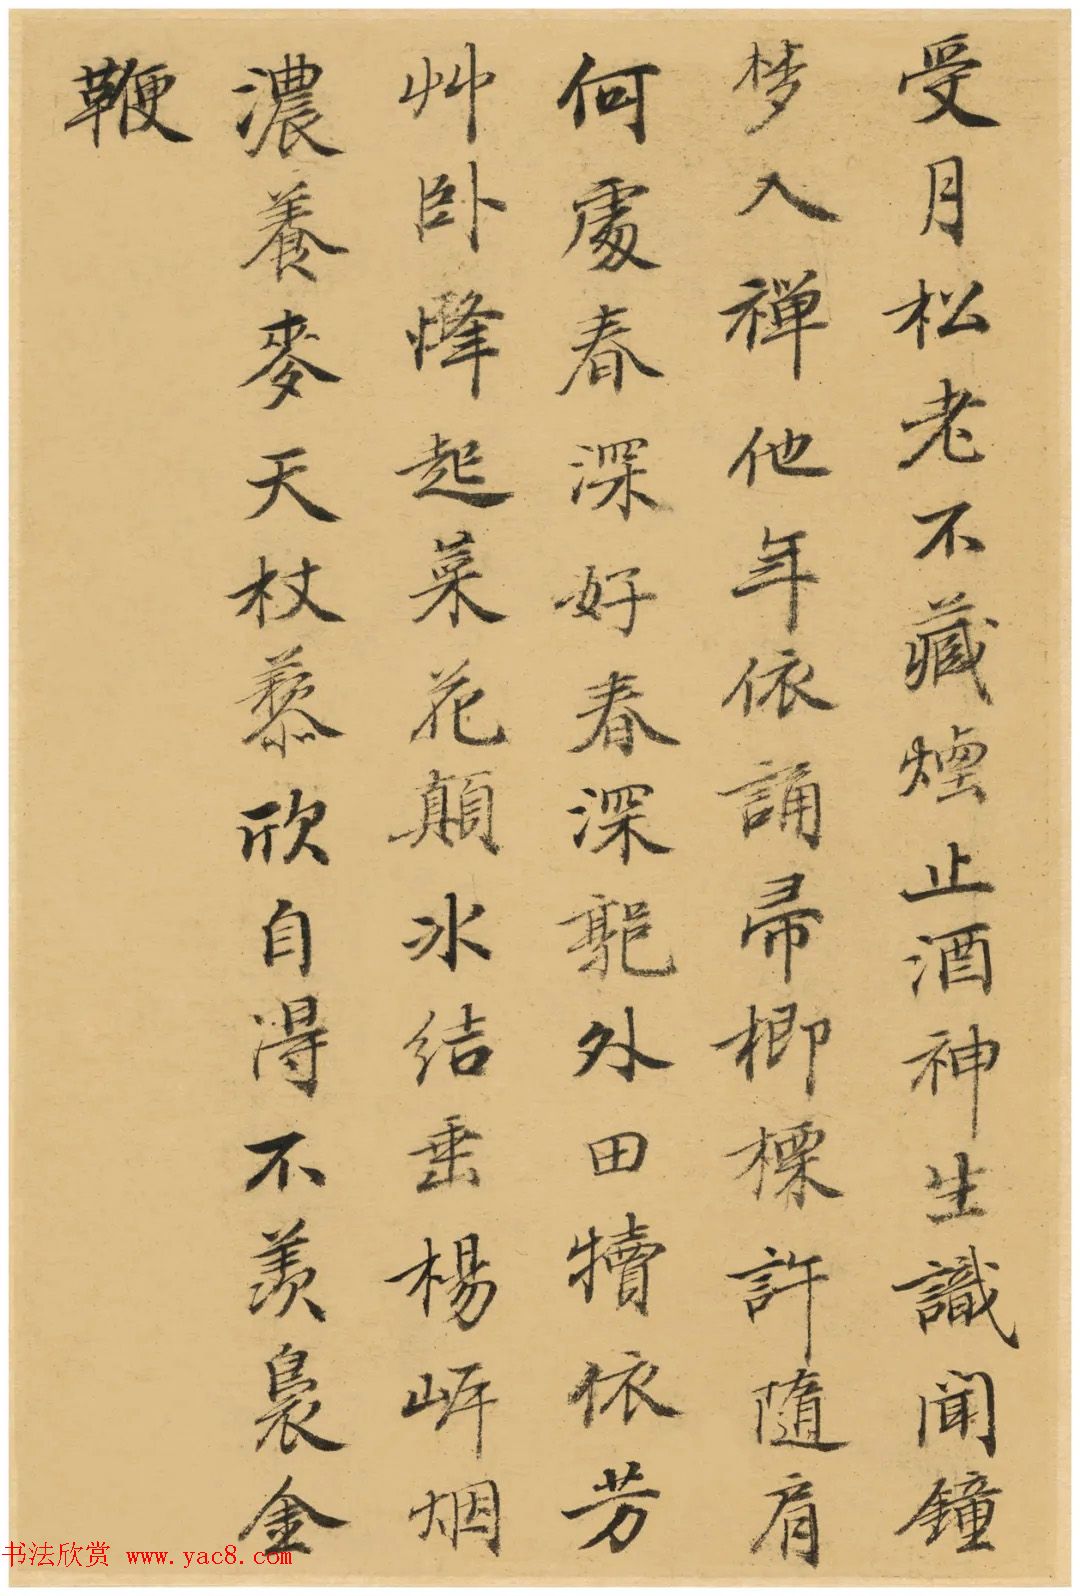 受月松老不藏煙止酒神生識聞鐘
梦入禅他年依誦帚楖檪許隨肩
何處春深好春深郭外田犢依芳
艸卧烽起菜花顛冰结垂楊岍烟
濃養麥天杖藜欣自得不羨裊金
鞭
书法欣赏 www.yac8.com